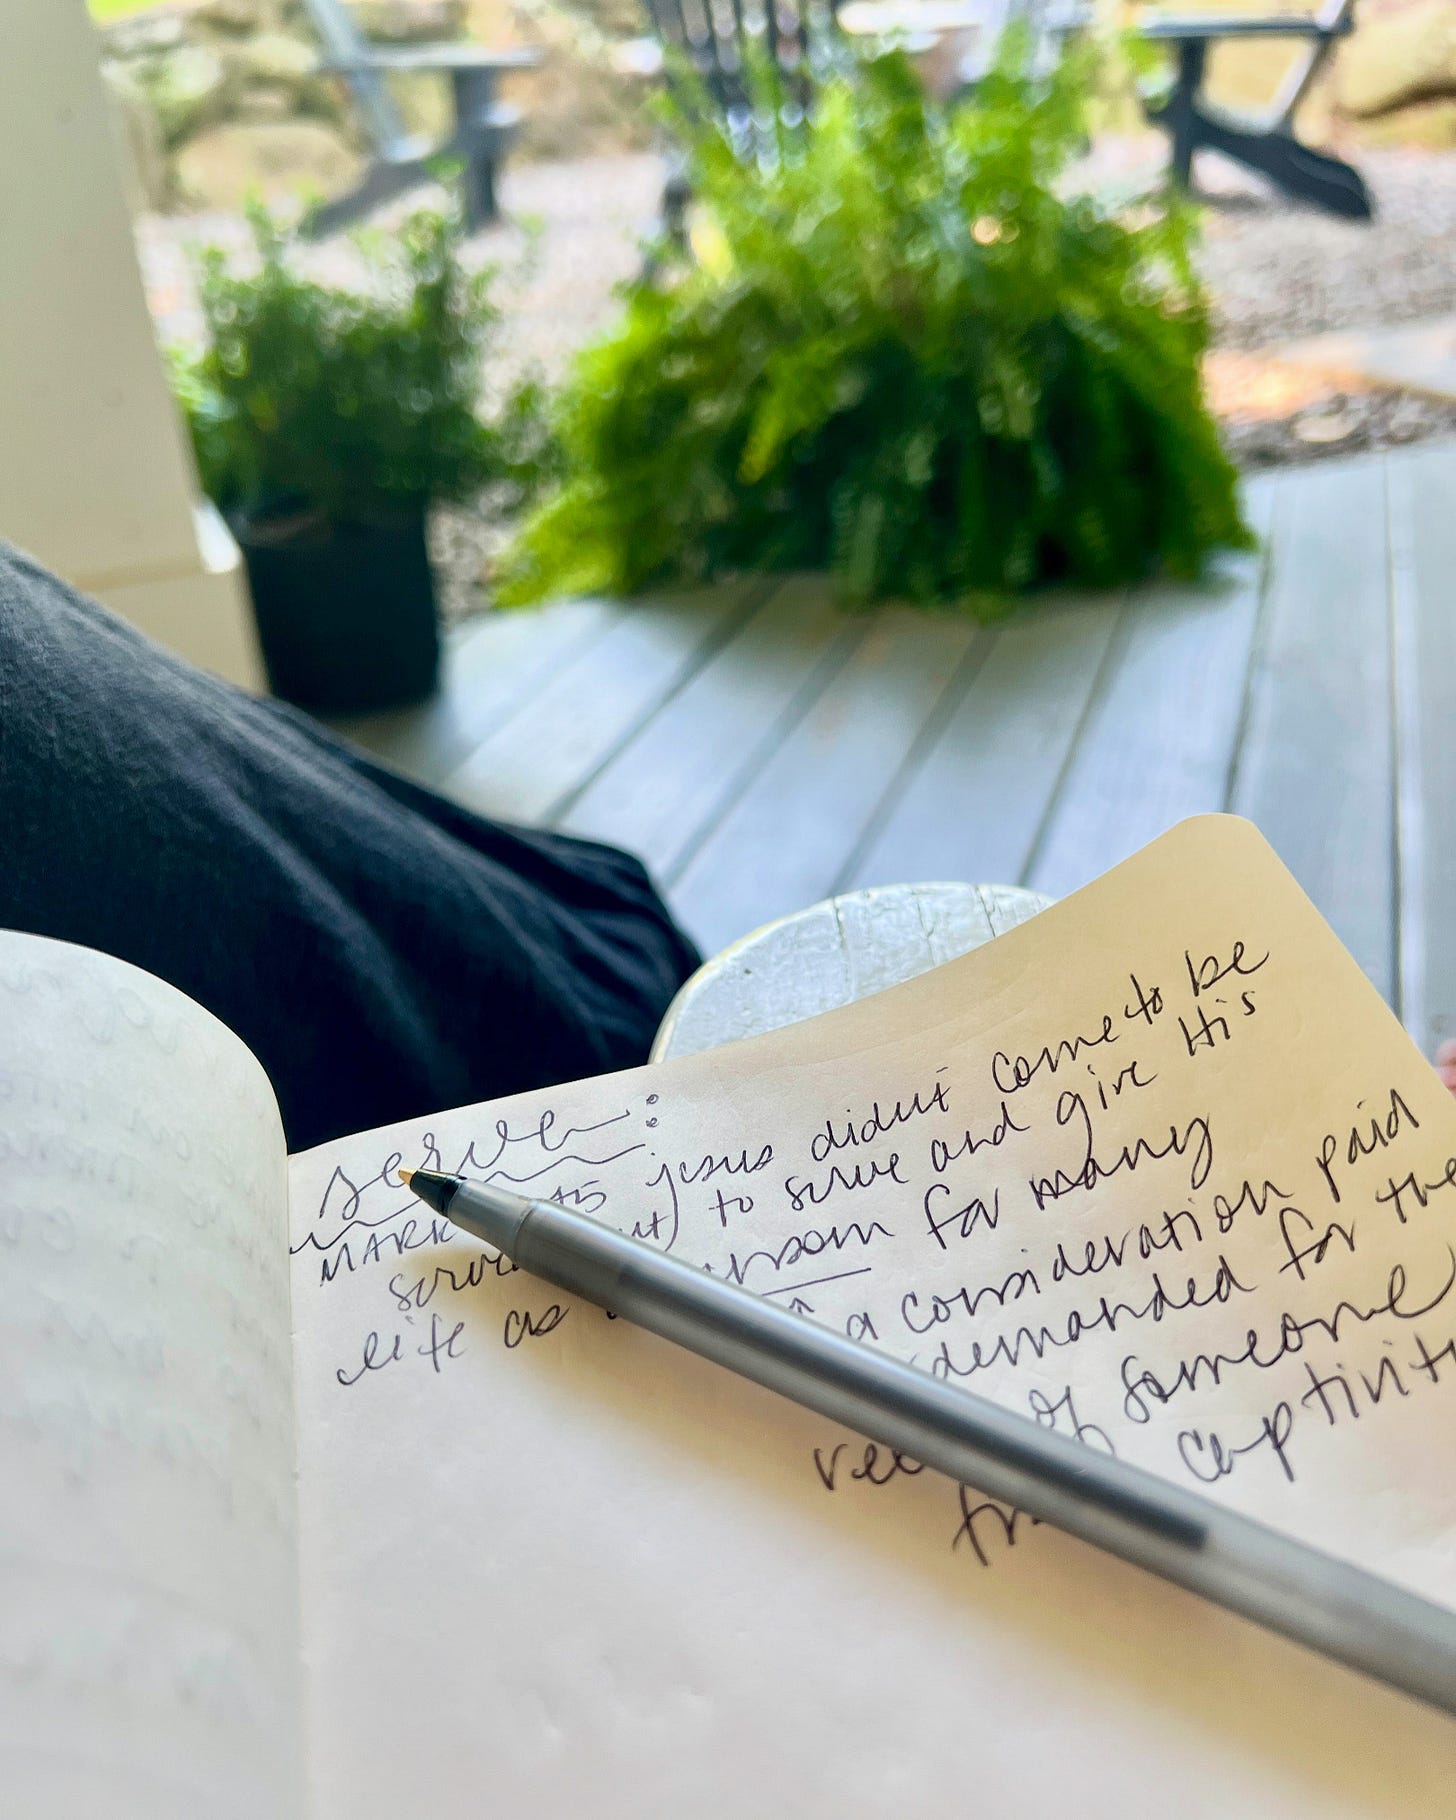 serve:
MARK Jesus didn't come to be
to serve and give His
life as for many
a consideration paid
demanded for the
of someone
captivity